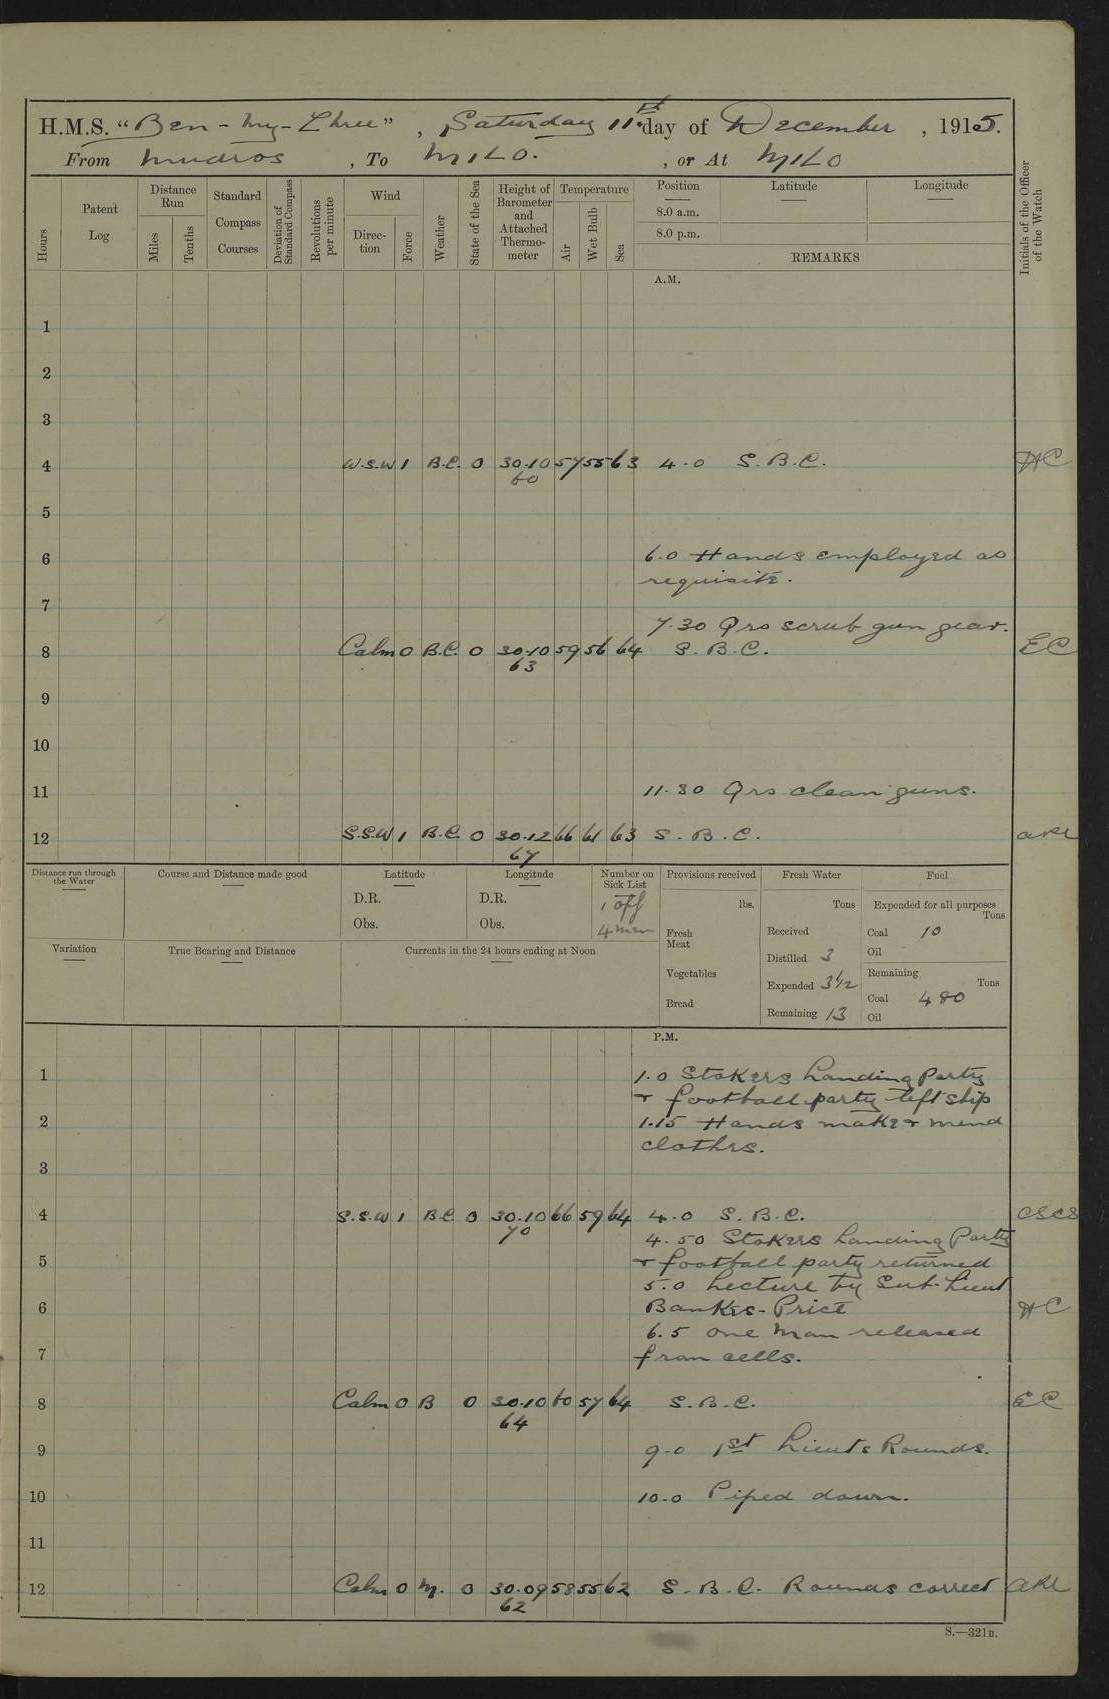 H.M.S. "Ben-my-Chree", Saturday 11st day of December, 1915.
From Mudros, To MILO., or At MILO
Hours
Patent Log
Distance Run
Miles
Tenths
Standard Compass Courses
Deviation of Standard Compass
Revolutions per minute
Wind
Direction
Force
Weather
State of the Sea
Height of Barometer and Attached Thermometer
Temperature
Air
Wet Bulb
Sea
Position
Latitude
Longitude
8.0 a.m.
8.0 p.m.
REMARKS
Initials of the Officer of the Watch
A.M.
1
2
3
4 W.S.W 1 B.C. 0 30.10 57 55 63 4.0 S.B.C. HC
60
5
6 6.0 Hands employed as
requisite.
7
7.30 Qrs scrub gun gear.
8 Calm 0 B.C. 0 30.10 59 56 64 S.B.C. EC
63
9
10
11 11.30 Qrs clean guns.
12 S.S.W 1 B.C. 0 30.12 66 61 63 S.B.C.
67
Distance run through the Water
Course and Distance made good
Latitude
D.R.
Obs.
Longitude
D.R.
Obs.
Number on Sick List
1 off
4 men
Provisions received
lbs.
Fresh Meat
Vegetables
Bread
Fresh Water
Tons
Received
Distilled 3
Expended 3½
Remaining 13
Fuel
Expended for all purposes
Tons
Coal 10
Oil
Remaining
Tons
Coal 480
Oil
Variation
True Bearing and Distance
Currents in the 24 hours ending at Noon
P.M.
1 1.0 Stokers Landing Party
+ football party left ship
2 1.15 Hands make + mend
clothes.
3
4 S.S.W 1 B.C. 0 30.10 66 59 64 4.0 S.B.C. CSCS
70
4.50 Stokers Landing Party
5 + football party returned
5.0 Lecture by Sub-Lieut
6 Bankes-Price HC
6.5 one man released
7 from cells.
8 Calm 0 B 0 30.10 60 57 64 S.B.C. EC
64
9 9.0 1st Lieuts Rounds.
10 10.0 Piped down.
11
12 Calm 0 M. 0 30.09 58 55 62 S.B.C. Rounds correct
62
S.—321B.